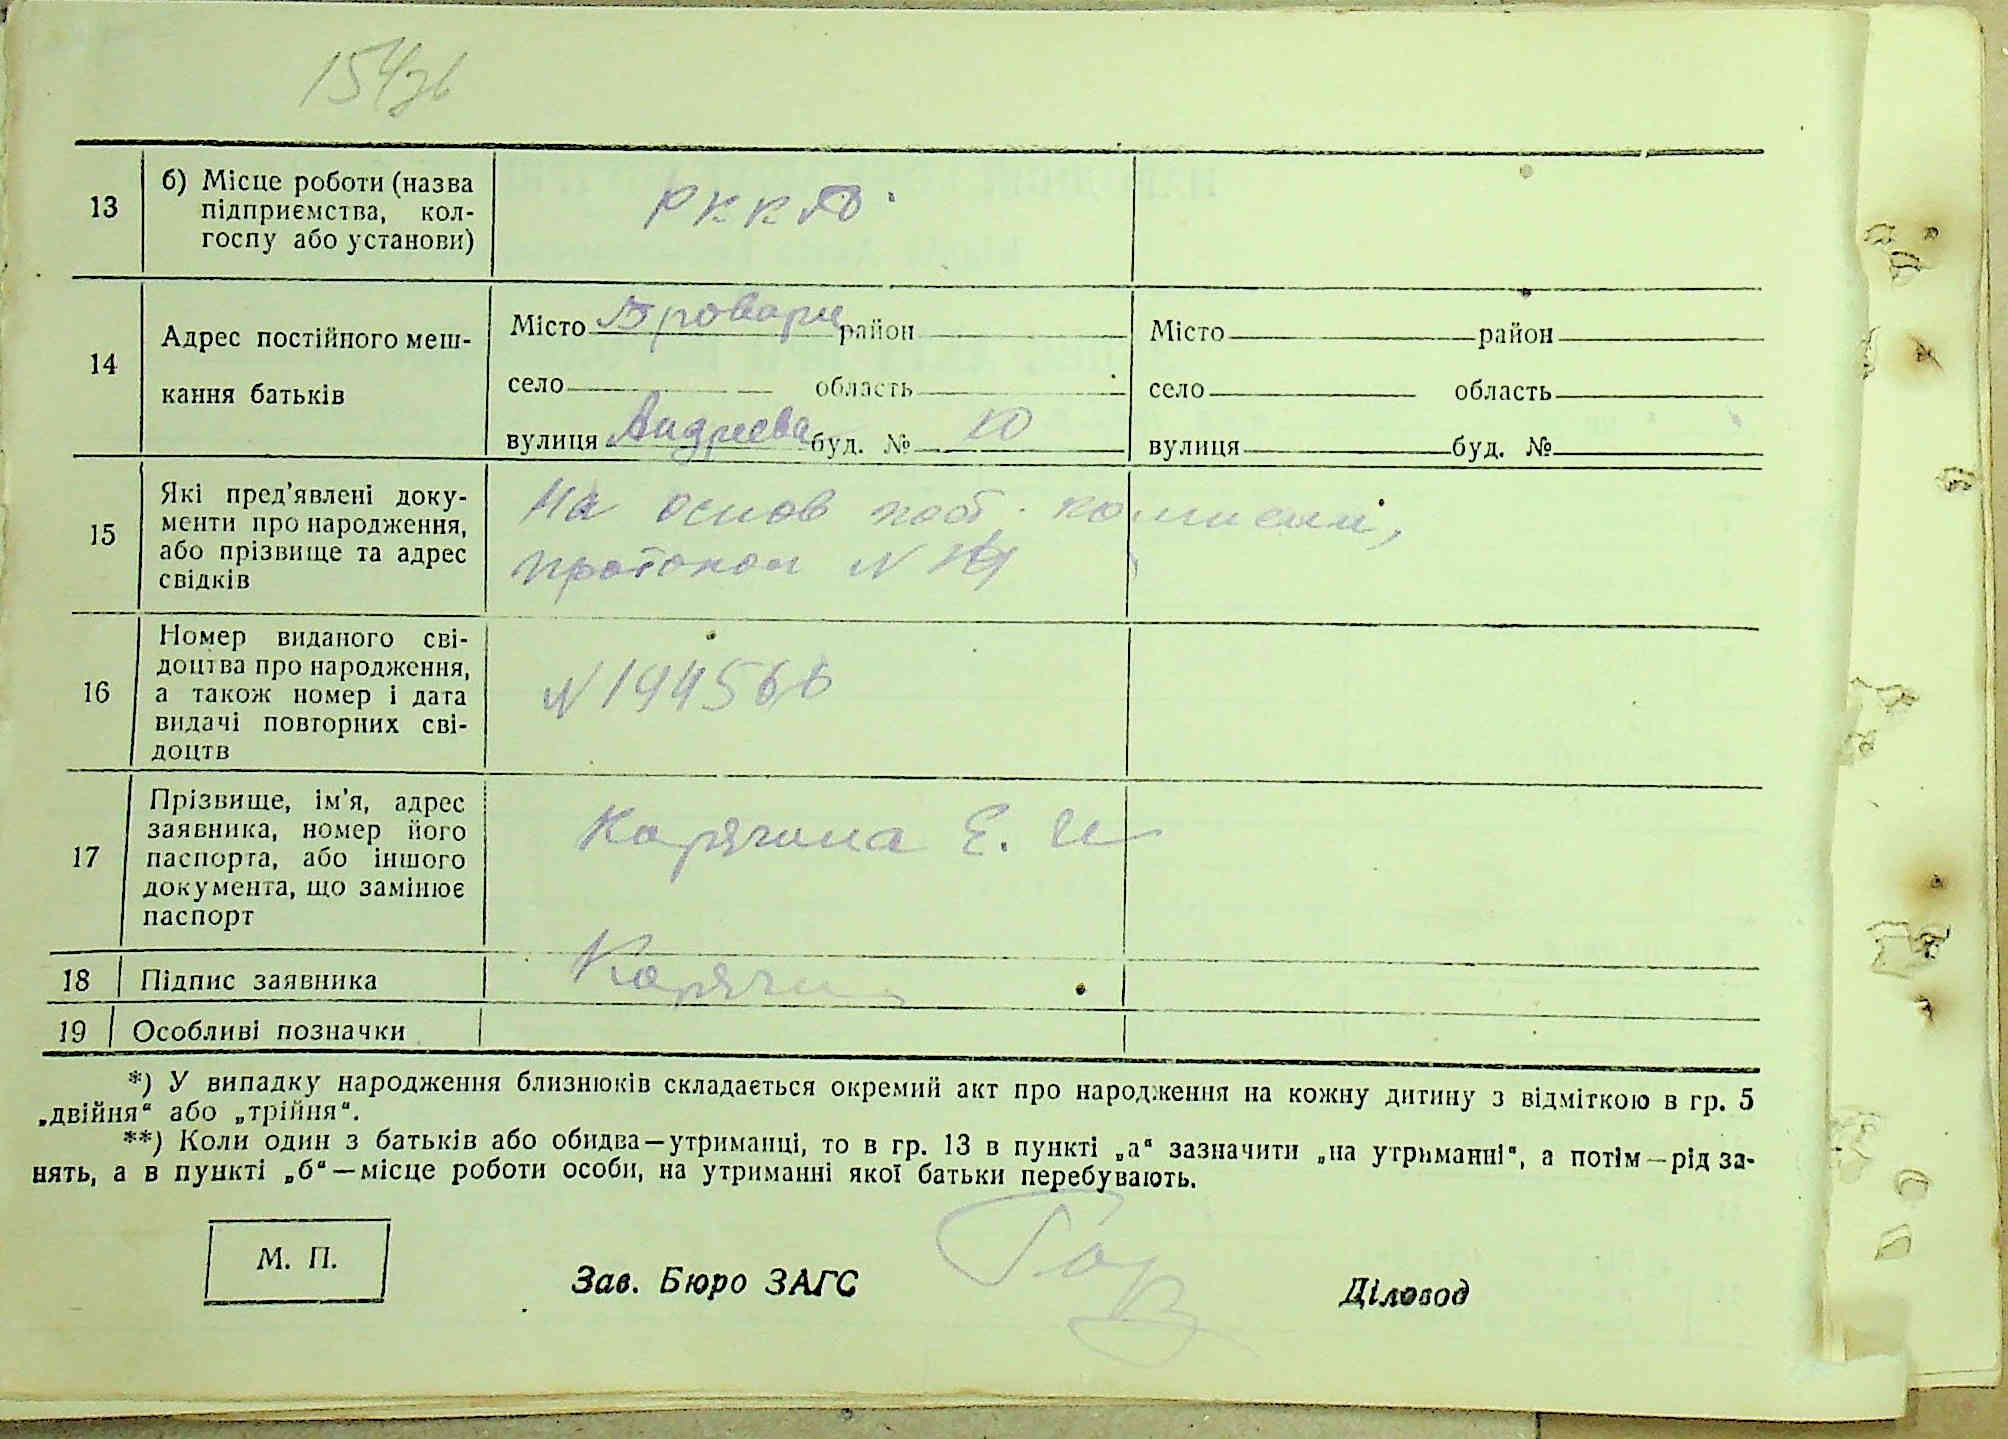 154зв
13
б) Місце роботи (назва
підприємства, кол-
госпу або установи)
РККА
14
Адрес постійного меш-
кання батьків
Місто Бровари район
село область
вулиця Андреева буд. № 10
Місто район
село область
вулиця буд. №
15
Які пред'явлені доку-
менти про народження,
або прізвище та адрес
свідків
На основ пост. комисии,
протокол N
16
Номер виданого сві-
доцтва про народження,
а також номер і дата
видачі повторних сві-
доцтв
N 194566
17
Прізвище, ім'я, адрес
заявника, номер його
паспорта, або іншого
документа, що замінює
паспорт
Карягина Е. И
18
Підпис заявника
Карягин
19
Особливі позначки
*) У випадку народження близнюків складається окремий акт про народження на кожну дитину з відміткою в гр. 5
„двійня“ або „трійня“.
**) Коли один з батьків або обидва—утриманці, то в гр. 13 в пункті „а“ зазначити „на утриманні“, а потім—рід за-
нять, а в пункті „б“—місце роботи особи, на утриманні якої батьки перебувають.
М. П.
Зав. Бюро ЗАГС
Діловод